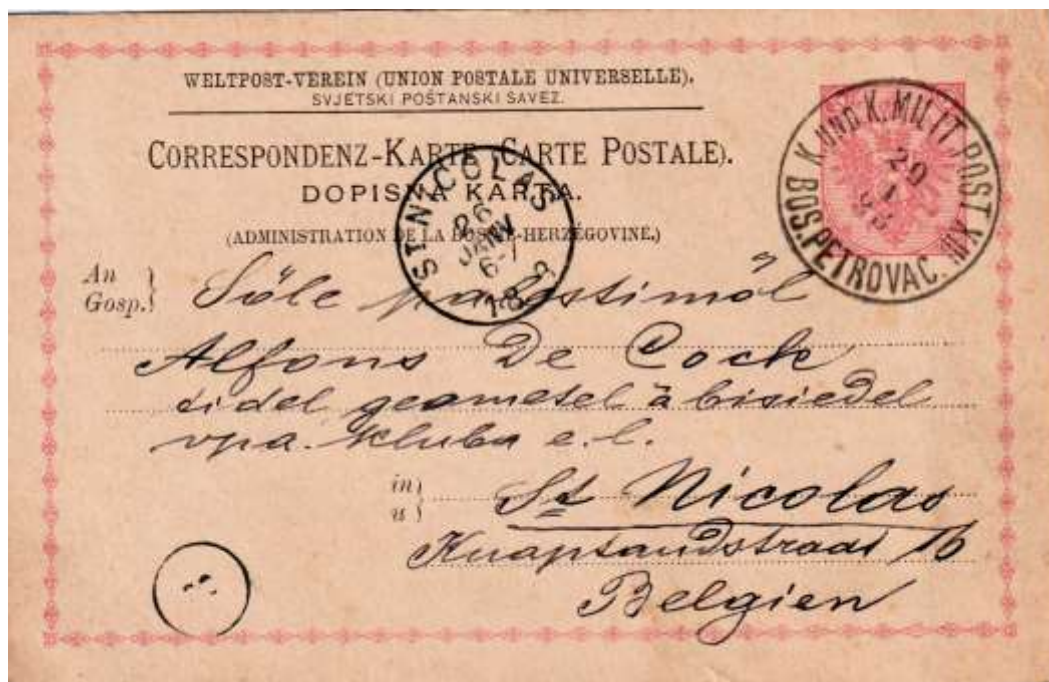 WELTPOST-VEREIN (UNION POSTALE UNIVERSELLE).
SVJETSKI POŠTANSKI SAVEZ.
CORRESPONDENZ-KARTE (CARTE POSTALE).
DOPISNA KARTA.
(ADMINISTRATION DE LA BOSNIE-HERZÉGOVINE.)
K. UND K. MILIT. POST XIII
20
BOS. PETROVAC.
ST-NICOLAS
26
JANV
6-7
An
Gosp.
Söle
Alfons De Cock
tidel geometel ä bisiedel
vpa. kluba e. l.
in
u
St Nicolas
Knaptandstraat 16
Belgien